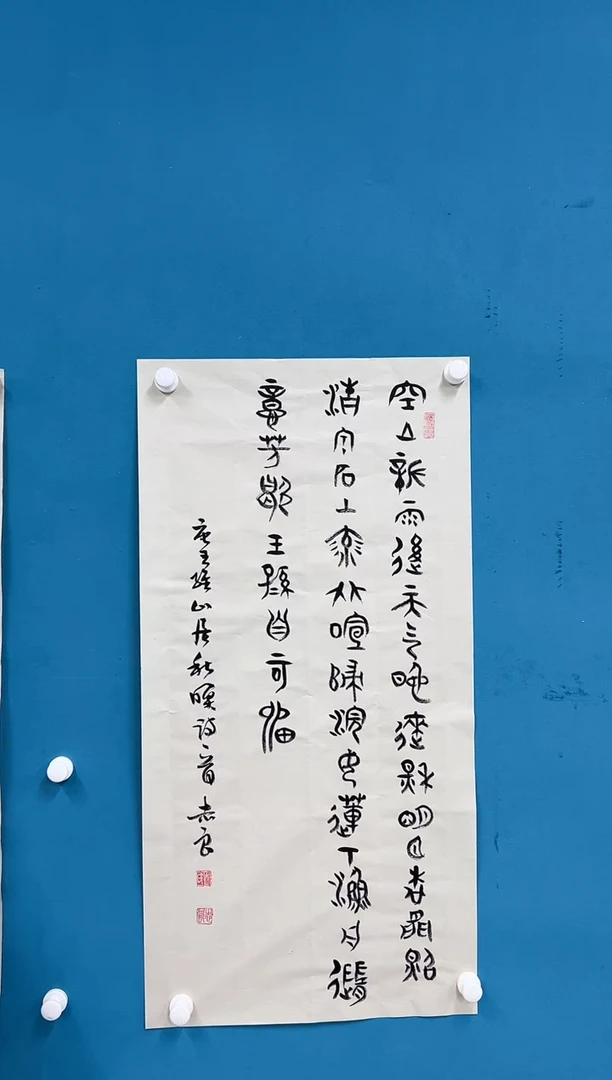 空山新雨後天气晚逨秋明月松間照
清泉石上流竹喧歸浣女蓮下漁舟隨
意芳歇王孫自可留
唐王維山居秋暝詩一首 志良